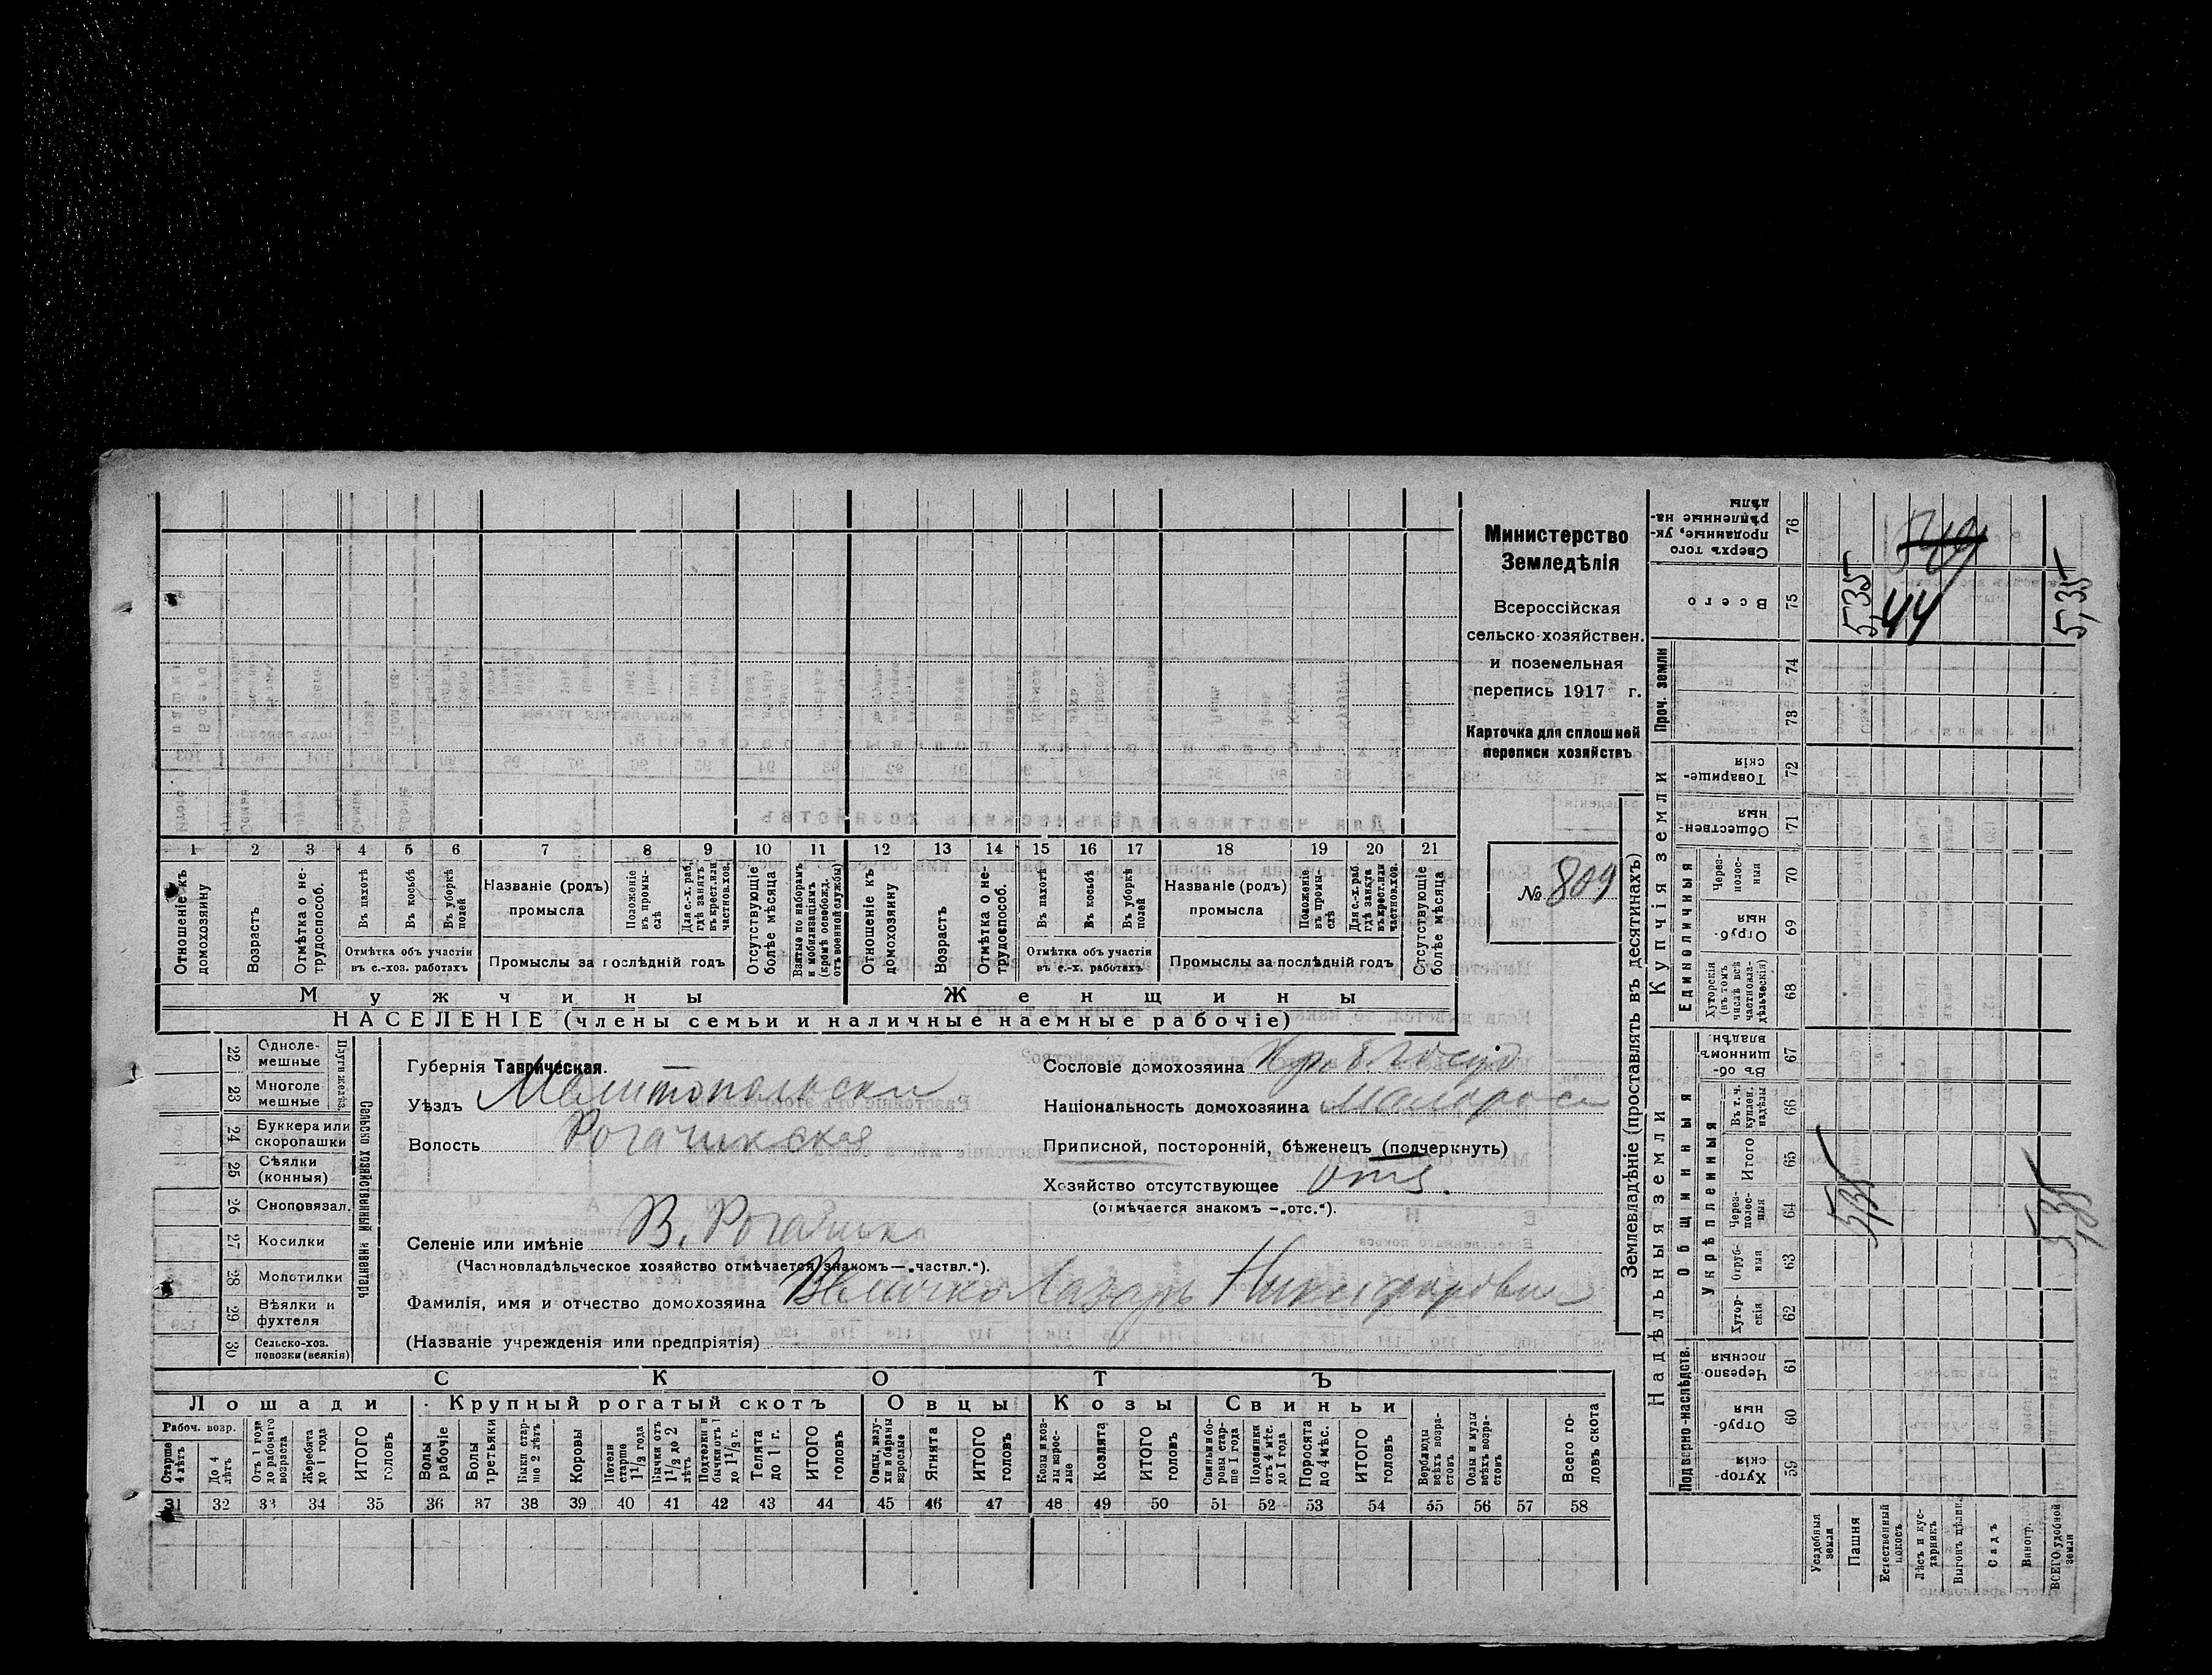 Министерство
Земледѣлія
Всероссійская
сельско-хозяйствен.
и поземельная
перепись 1917 г.
Карточка для сплошней
переписи хозяйствъ
№ 809
1 2 3 4 5 6 7 8 9 10 11 12 13 14 15 16 17 18 19 20 21
Отношеніе къ домохозяину
Возрастъ
Отмѣтка о не-трудоспособ.
Въ пахотѣ
Въ косьбѣ
Въ уборкѣ полей
Отмѣтка объ участіи
въ с.-хоз. работахъ
Названіе (родъ)
промысла
Положеніе въ промы-слѣ
Для с.-х. раб. гдѣ занятъ въ крест. или частнов. хоз.
Промыслы за послѣдній годъ
Отсутствующіе болѣе мѣсяца
Взятые по наборамъ и мобилизаціямъ (кромѣ освобожд. отъ военной службы)
Отношеніе къ домохозяину
Возрастъ
Отмѣтка о не-трудоспособ.
Въ пахотѣ
Въ косьбѣ
Въ уборкѣ полей
Отмѣтка объ участіи
въ с.-х. работахъ
Названіе (родъ)
промысла
Положеніе въ промы-слѣ
Для с.-х. раб. гдѣ занята въ крест. или частнов. хоз.
Промыслы за послѣдній годъ
Отсутствующіе болѣе мѣсяца
Мужчины Женщины
НАСЕЛЕНІЕ (члены семьи и наличные наемные рабочіе)
22 Однолемешные
23 Многолемешные
Плуги желѣз.
24 Буккера или скоропашки
25 Сѣялки (конныя)
26 Сноповязал.
27 Косилки
28 Молотилки
29 Вѣялки и фухтеля
30 Сельско-хоз. повозки (всякія)
Сельско хозяйственный инвентарь
Губернія Таврическая.
Уѣздъ Мелитопольски
Волость Рогачикская
Селеніе или имѣніе В. Рогачик
(Частновладѣльческое хозяйство отмѣчается знакомъ—„частвл.“).
Фамилія, имя и отчество домохозяина Величко Лазарь Никифорович
(Названіе учрежденія или предпріятія)
Сословіе домохозяина Кр. б. Госуд
Національность домохозяина Малорос
Приписной, посторонній, бѣженецъ (подчеркнуть)
Хозяйство отсутствующее отс.
(отмѣчается знакомъ —„отс.“).
СКОТЪ
Лошади Крупный рогатый скотъ Овцы Козы Свиньи
Рабоч. возр.
Старше 4 лѣтъ
До 4 лѣтъ
Отъ 1 года до рабочаго возраста
Жеребята до 1 года
ИТОГО головъ
Волы рабочіе
Волы третьяки
Быки стар-ше 2 лѣтъ
Коровы
Нетели старше 1 1/2 года
Бычки отъ 1 1/2 до 2 лѣтъ
Подтелки и бычки отъ 1 до 1 1/2 г.
Телята до 1 г.
ИТОГО головъ
Овцы, валу-хи и бараны взрослые
Ягнята
ИТОГО головъ
Козы и коз-лы взрос-лые
Козлята
ИТОГО головъ
Свиньи и бо-ровы стар-ше 1 года
Подсвинки отъ 4 мѣс. до 1 года
Поросята до 4 мѣс.
ИТОГО головъ
Верблюды всѣхъ возра-стовъ
Ослы и мулы всѣхъ возра-стовъ
Всего го-ловъ скота
31 32 33 34 35 36 37 38 39 40 41 42 43 44 45 46 47 48 49 50 51 52 53 54 55 56 57 58
Землевладѣніе (проставлять въ десятинахъ)
Надѣльныя земли Купчія земли Проч. земли
Подворно-наслѣдств.
Общинныя
Укрѣпленныя
Единоличныя
Хутор-скія 59
Отруб-ныя 60
Черезпо-лосныя 61
Хутор-скія 62
Отруб-ныя 63
Через-полос-ныя 64
Итого 65
Въ т. ч. куплен. надѣлы 66
Въ об-щинномъ владѣн. 67
Хуторскія (въ томъ числѣ всѣ частновла-дѣльческія) 68
Отруб-ныя 69
Через-полос-ныя 70
Обществен-ныя 71
Товарище-скія 72
73
74
Всего 75
Сверхъ того проданные, ук-рѣпленные на-дѣлы 76
Усадебныя земли
Пашня 5,35 5,35
Естественный покосъ
Лѣсъ и кус-тарникъ
Выгонъ цѣлин.
Садъ
Виногр.
ВСЕГО удобной земли 5,35 5,35
44